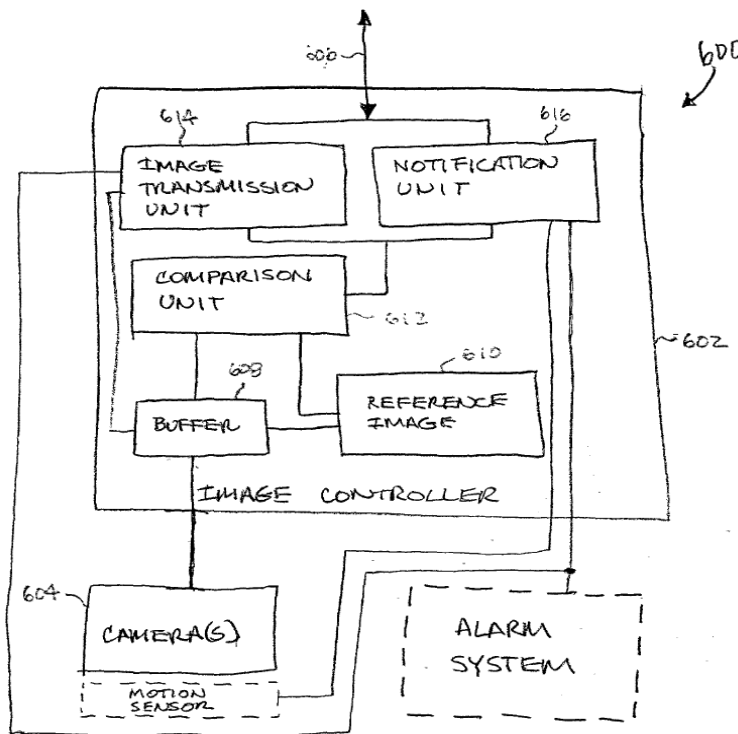 600
606
614
616
IMAGE
TRANSMISSION
UNIT
NOTIFICATION
UNIT
COMPARISON
UNIT
612
602
608
610
BUFFER
REFERENCE
IMAGE
IMAGE CONTROLLER
604
CAMERA(S)
MOTION
SENSOR
ALARM
SYSTEM